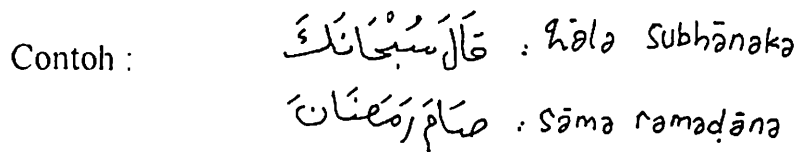 Contoh : قَالَ سُبْحَانَكَ : qāla subhānaka
صَامَ رَمَضَانَ : sāma ramaḍāna